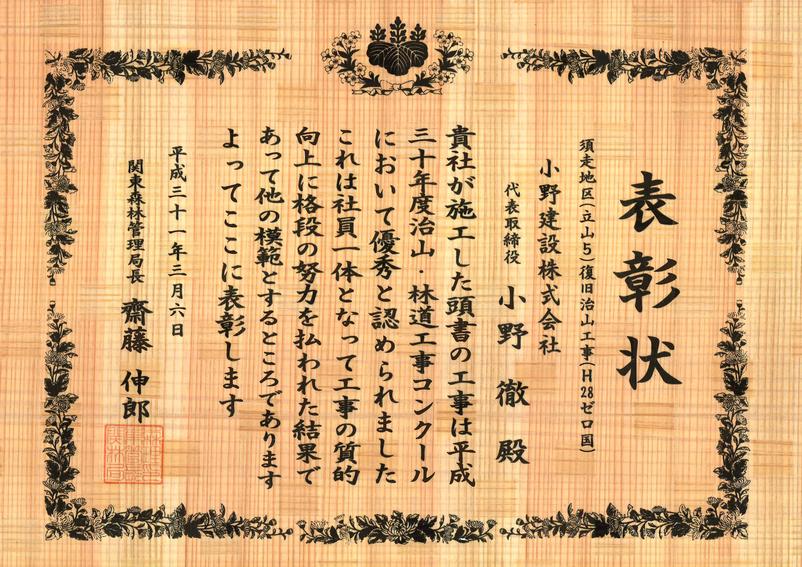 表彰状
須走地区(立山5)復旧治山工事(H28ゼロ国)
小野建設株式会社
代表取締役 小野徹殿
貴社が施工した頭書の工事は平成
三十年度治山・林道工事コンクール
において優秀と認められました
これは社員一体となって工事の質的
向上に格段の努力を払われた結果で
あって他の模範とするところであります
よってここに表彰します
平成三十一年三月六日
関東森林管理局長 齋藤伸郎